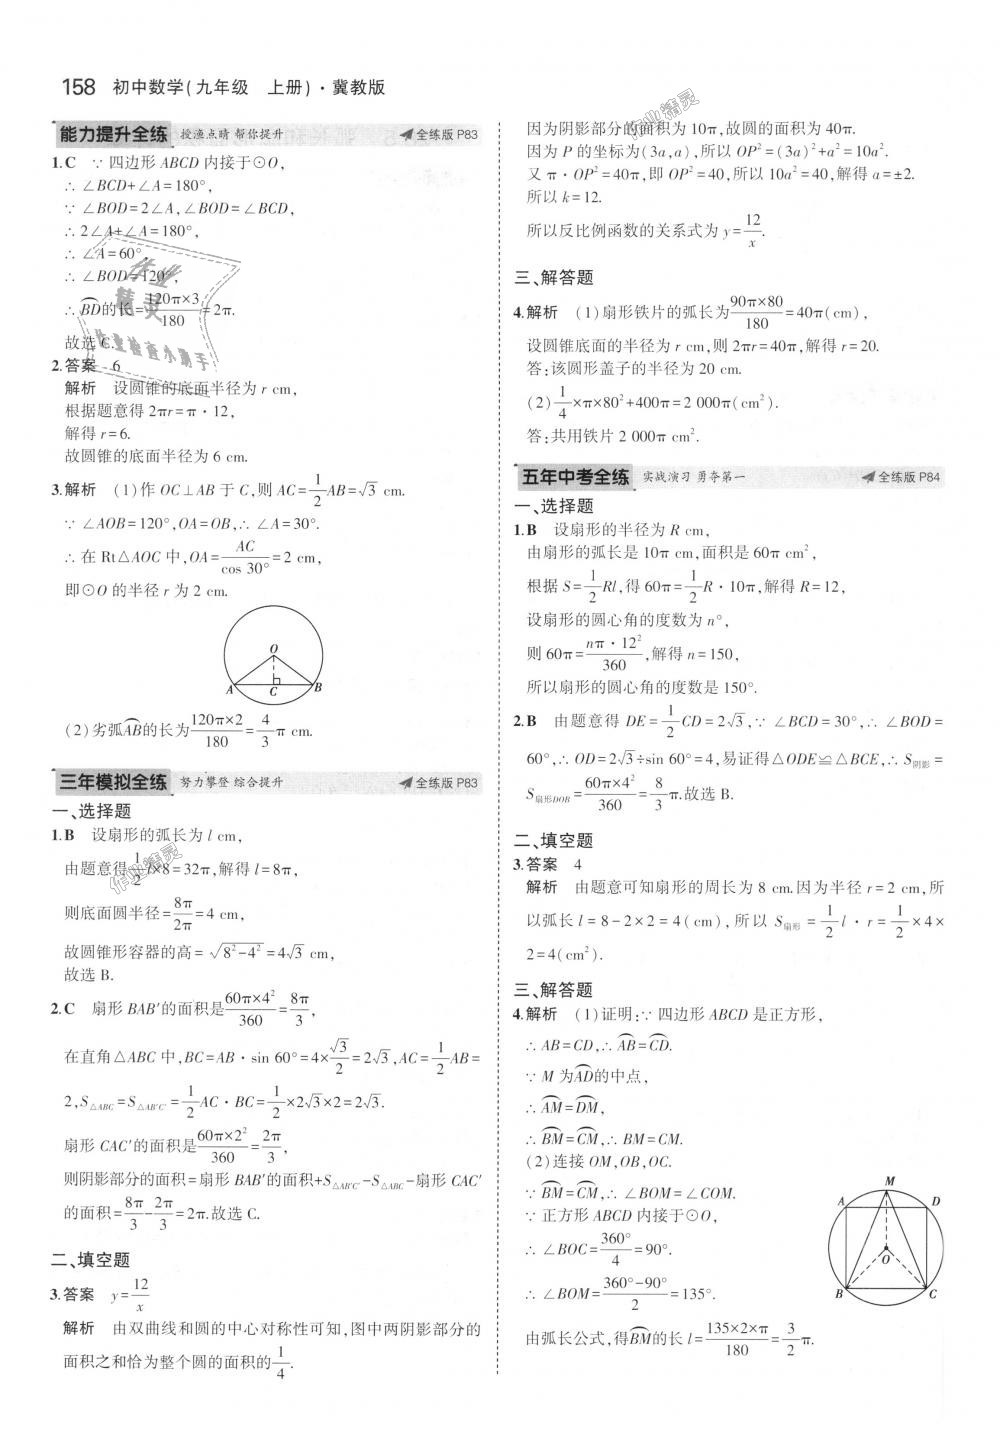 158 初中数学(九年级 上册)·冀教版
能力提升全练 授渔点睛 帮你提升 全练版 P83
1.C ∵ 四边形 ABCD 内接于⊙O,
∴ ∠BCD+∠A=180°,
∵ ∠BOD=2∠A,∠BOD=∠BCD,
∴ 2∠A+∠A=180°,
∴ ∠A=60°,
∴ ∠BOD=120°,
∴ BD⌒的长=120π×3/180=2π.
故选 C.
2.答案 6
解析 设圆锥的底面半径为 r cm,
根据题意得 2πr=π·12,
解得 r=6.
故圆锥的底面半径为 6 cm.
3.解析 (1)作 OC⊥AB 于 C,则 AC=1/2AB=√3 cm.
∵ ∠AOB=120°,OA=OB,∴ ∠A=30°.
∴ 在 Rt△AOC 中,OA=AC/cos 30°=2 cm,
即⊙O 的半径 r 为 2 cm.
O
A C B
(2)劣弧AB⌒的长为120π×2/180=4/3π cm.
三年模拟全练 努力攀登 综合提升 全练版 P83
一、选择题
1.B 设扇形的弧长为 l cm,
由题意得1/2l×8=32π,解得 l=8π,
则底面圆半径=8π/2π=4 cm,
故圆锥形容器的高=√(8²-4²)=4√3 cm,
故选 B.
2.C 扇形 BAB′的面积是60π×4²/360=8π/3,
在直角△ABC 中,BC=AB·sin 60°=4×√3/2=2√3,AC=1/2AB=
2,S△ABC=S△AB′C′=1/2AC·BC=1/2×2√3×2=2√3.
扇形 CAC′的面积是60π×2²/360=2π/3,
则阴影部分的面积=扇形 BAB′的面积+S△AB′C′-S△ABC-扇形 CAC′
的面积=8π/3-2π/3=2π.故选 C.
二、填空题
3.答案 y=12/x
解析 由双曲线和圆的中心对称性可知,图中两阴影部分的
面积之和恰为整个圆的面积的1/4.
因为阴影部分的面积为 10π,故圆的面积为 40π.
因为 P 的坐标为(3a,a),所以 OP²=(3a)²+a²=10a².
又 π·OP²=40π,即 OP²=40,所以 10a²=40,解得 a=±2.
所以 k=12.
所以反比例函数的关系式为 y=12/x.
三、解答题
4.解析 (1)扇形铁片的弧长为90π×80/180=40π(cm),
设圆锥底面的半径为 r cm,则 2πr=40π,解得 r=20.
答:该圆形盖子的半径为 20 cm.
(2)1/4×π×80²+400π=2 000π(cm²).
答:共用铁片 2 000π cm².
五年中考全练 实战演习 勇夺第一 全练版 P84
一、选择题
1.B 设扇形的半径为 R cm,
由扇形的弧长是 10π cm,面积是 60π cm²,
根据 S=1/2Rl,得 60π=1/2R·10π,解得 R=12,
设扇形的圆心角的度数为 n°,
则 60π=nπ·12²/360,解得 n=150,
所以扇形的圆心角的度数是 150°.
2.B 由题意得 DE=1/2CD=2√3,∵ ∠BCD=30°,∴ ∠BOD=
60°,∴ OD=2√3÷sin 60°=4,易证得△ODE≌△BCE,∴ S阴影=
S扇形DOB=60π×4²/360=8/3π.故选 B.
二、填空题
3.答案 4
解析 由题意可知扇形的周长为 8 cm.因为半径 r=2 cm,所
以弧长 l=8-2×2=4(cm),所以 S扇形=1/2l·r=1/2×4×
2=4(cm²).
三、解答题
4.解析 (1)证明:∵ 四边形 ABCD 是正方形,
∴ AB=CD,∴ AB⌒=CD⌒.
∵ M 为AD⌒的中点,
∴ AM⌒=DM⌒,
∴ BM⌒=CM⌒,∴ BM=CM.
(2)连接 OM,OB,OC.
∵ BM⌒=CM⌒,∴ ∠BOM=∠COM.
∵ 正方形 ABCD 内接于⊙O,
∴ ∠BOC=360°/4=90°.
∴ ∠BOM=360°-90°/2=135°.
由弧长公式,得BM⌒的长 l=135×2×π/180=3/2π.
M
A D
O
B C
作业精灵
作业
精灵
作业检查小助手
作业精灵